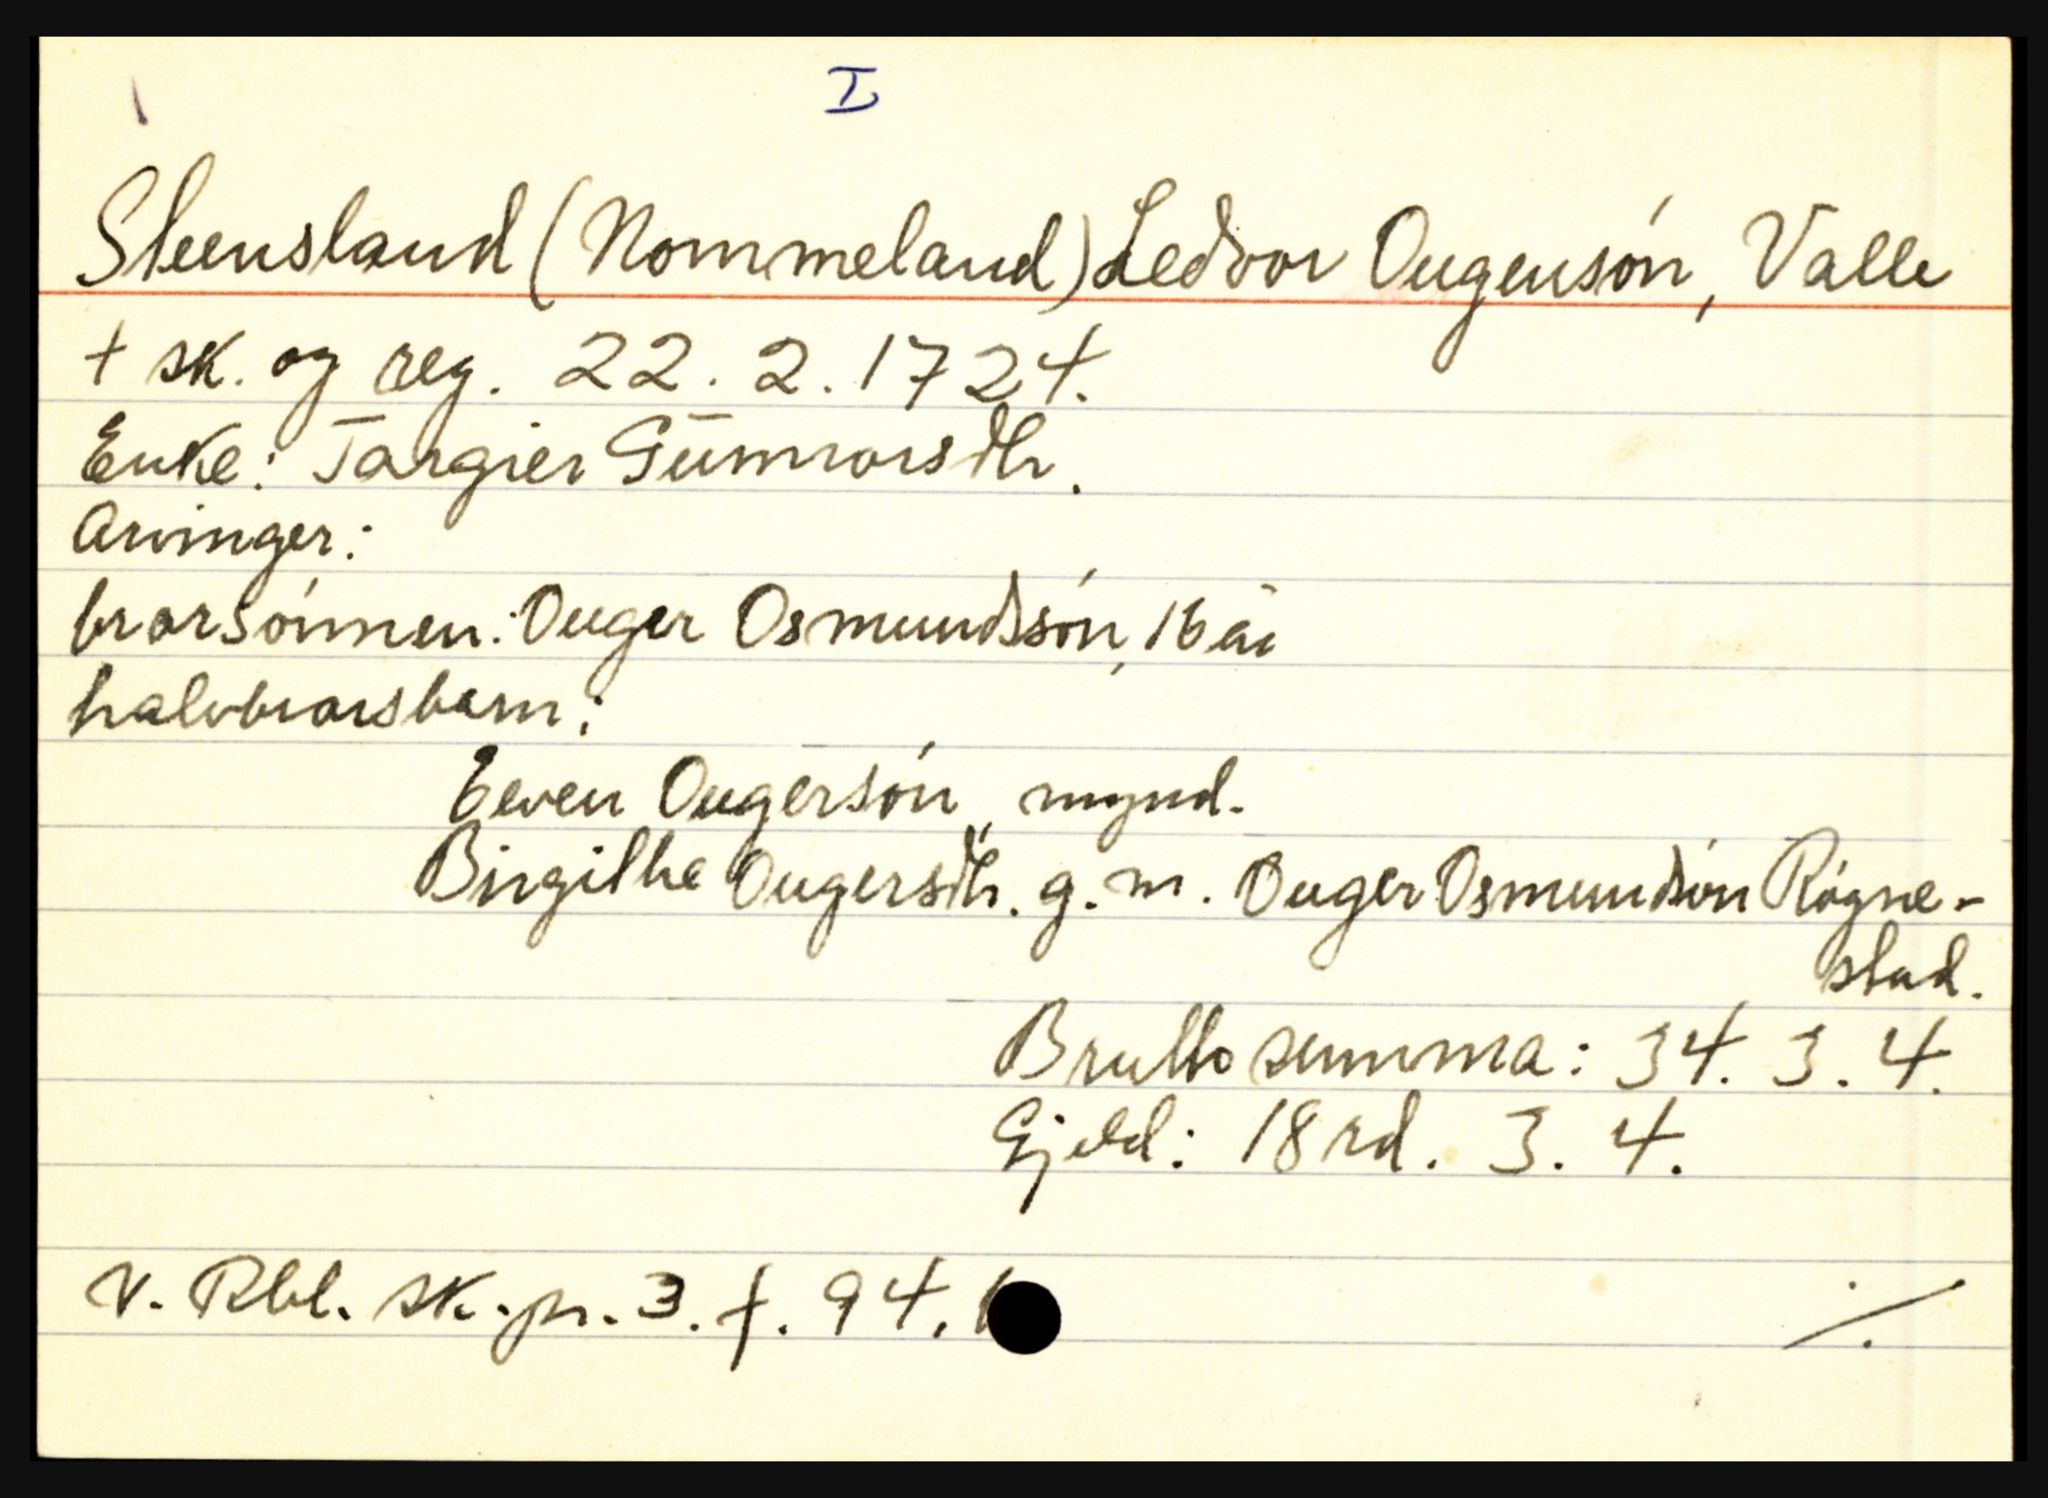 I
Steensland (Nommeland) Ledvor Ougensón, Valle
+ sk. og reg. 22. 2. 1724.
Enke: Targier Gunnvorsdtr.
Arvinger:
brorsónnen: Ouger Osmundssón, 16 år
halvbrorsbarn:
Eeven Ougersón, mynd.
Birgithe Ougersdtr. g. m. Ouger Osmundsón Rógne-
stad.
Brutto summa: 34. 3. 4.
Gjeld: 18 rd. 3. 4.
V. Rbl. sk. pr. 3. f. 94,
./.